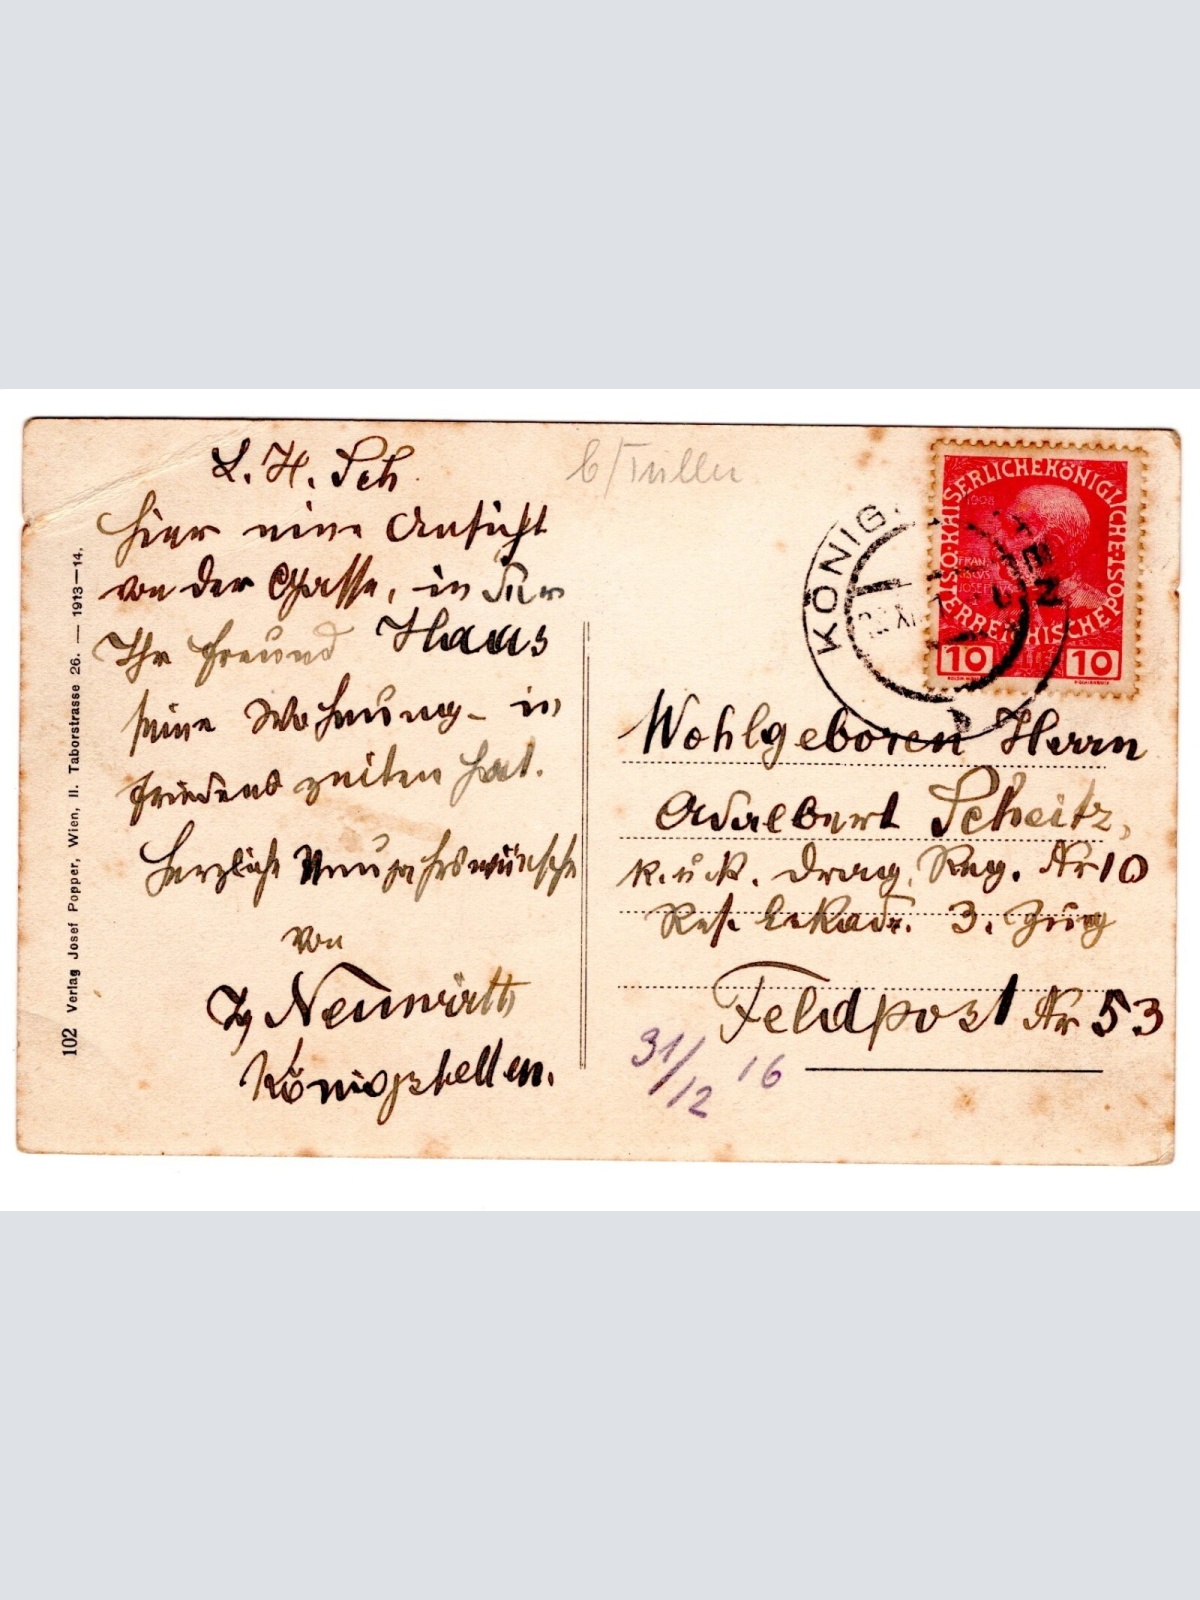 L. H. Sch
hier eine Ansicht
von der Gasse, in der
Ihr Freund Haas
seine Wohnung in
Friedenszeiten hat.
Herzliche Neujahrswünsche
von
Ig Neuwirth
Königstetten.
b/Tulln
102 Verlag Josef Popper, Wien, II. Taborstrasse 26. — 1913—14.
KÖNIG
TEN
KAISERLICHE KÖNIGLICHE ÖSTERREICHISCHE POST
1908
FRAN
JOSEF
10 10
Wohlgeboren Herrn
Adalbert Scheitz,
k.u.k. Drag. Reg. Nr 10
3. Zug
Feldpost Nr 53
31/12 16